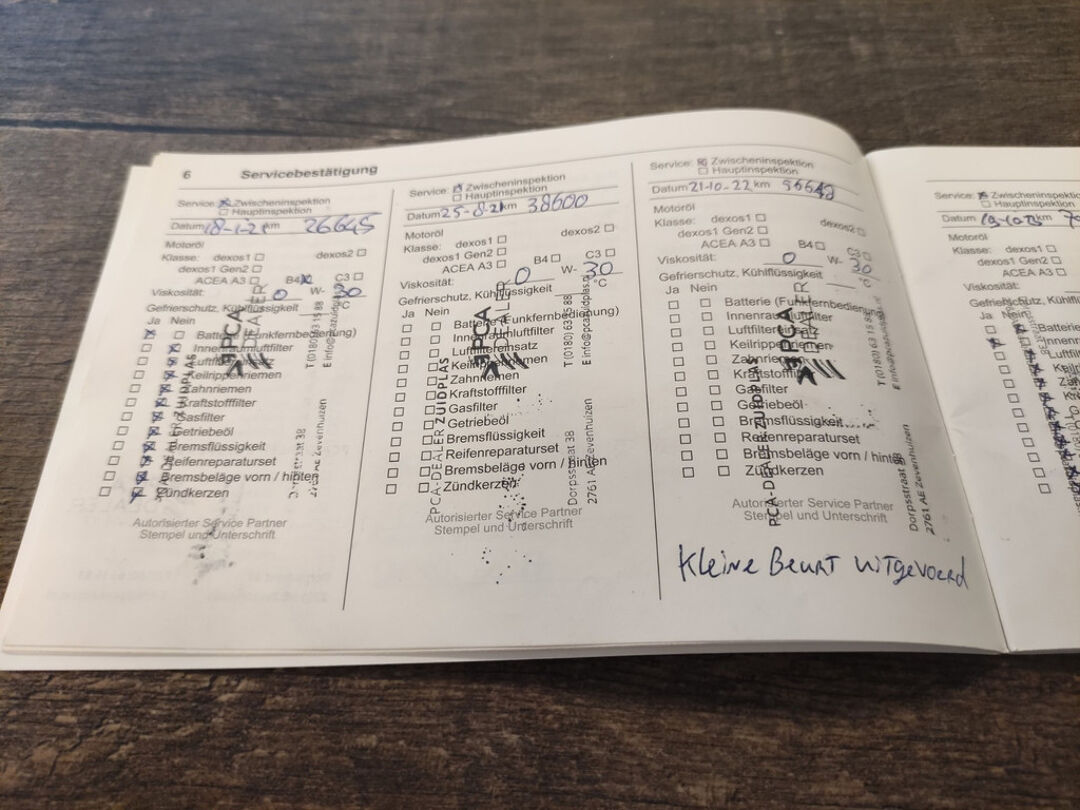 6 Servicebestätigung
Service: Zwischeninspektion
Hauptinspektion
Datum 18-1-21 km 26645
Motoröl
Klasse: dexos1 dexos2
dexos1 Gen2
ACEA A3 B4 C3
Viskosität: 0 W- 30
Gefrierschutz, Kühlflüssigkeit °C
Ja Nein
Batterie (Funkfernbedienung)
Innenraumluftfilter
Luftfiltereinsatz
Keilrippenriemen
Zahnriemen
Kraftstofffilter
Gasfilter
Getriebeöl
Bremsflüssigkeit
Reifenreparaturset
Bremsbeläge vorn / hinten
Zündkerzen
PCA
DEALER
PCA-DEALER ZUIDPLAS
T (0180) 63 15 88
E info@pcazuidplas.nl
Dorpsstraat 38
2761 AE Zevenhuizen
Autorisierter Service Partner
Stempel und Unterschrift
Service: Zwischeninspektion
Hauptinspektion
Datum 25-8-21 km 38600
Motoröl
Klasse: dexos1 dexos2
dexos1 Gen2
ACEA A3 B4 C3
Viskosität: 0 W- 30
Gefrierschutz, Kühlflüssigkeit °C
Ja Nein
Batterie (Funkfernbedienung)
Innenraumluftfilter
Luftfiltereinsatz
Keilrippenriemen
Zahnriemen
Kraftstofffilter
Gasfilter
Getriebeöl
Bremsflüssigkeit
Reifenreparaturset
Bremsbeläge vorn / hinten
Zündkerzen
PCA
DEALER
PCA-DEALER ZUIDPLAS
T (0180) 63 15 88
E info@pcazuidplas.nl
Dorpsstraat 38
2761 AE Zevenhuizen
Autorisierter Service Partner
Stempel und Unterschrift
Service: Zwischeninspektion
Hauptinspektion
Datum 21-10-22 km
Motoröl
Klasse: dexos1 dexos2
dexos1 Gen2
ACEA A3 B4 C3
Viskosität: 0 W- 30
Gefrierschutz, Kühlflüssigkeit °C
Ja Nein
Batterie (Funkfernbedienung)
Innenraumluftfilter
Luftfiltereinsatz
Keilrippenriemen
Zahnriemen
Kraftstofffilter
Gasfilter
Getriebeöl
Bremsflüssigkeit
Reifenreparaturset
Bremsbeläge vorn / hinten
Zündkerzen
PCA
DEALER
PCA-DEALER ZUIDPLAS
T (0180) 63 15 88
E info@pcazuidplas.nl
Dorpsstraat 38
2761 AE Zevenhuizen
Autorisierter Service Partner
Stempel und Unterschrift
Kleine Beurt uitgevoerd
Service: Zwischeninspektion
Hauptinspektion
Datum km
Motoröl
Klasse: dexos1
dexos1 Gen2
ACEA A3
Viskosität:
Ja Nein